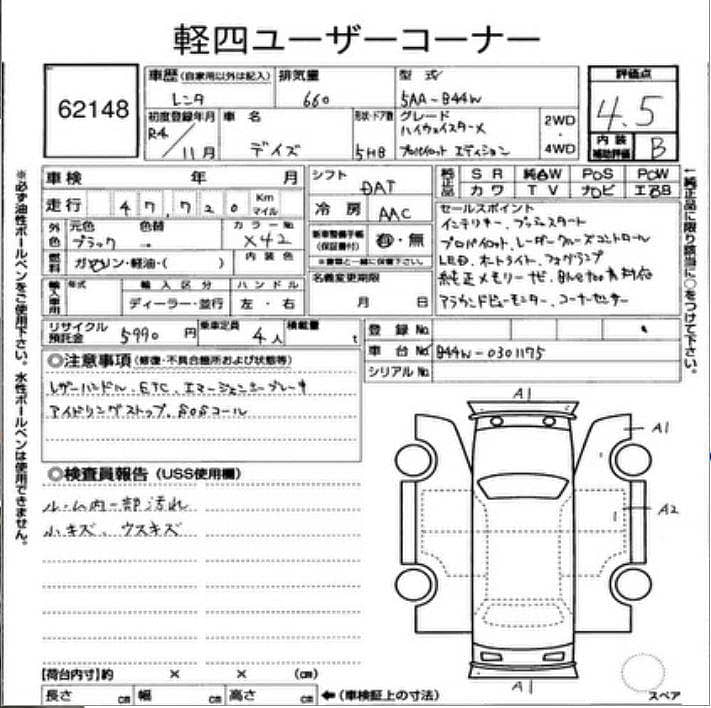 軽四ユーザーコーナー
62148
車歴(自家用以外は記入) 排気量 型式 評価点
レンタ 660 5AA-B44W 4.5
初度登録年月 車名 形状・ドア数 グレード 2WD・4WD
R4/11月 デイズ 5HB ハイウェイスターX プロパイロット エディション
内装補助評価 B
車検 年 月 シフト DAT
純正品 SR 純AW PS PW
カワ TV ナビ エアB
走行 47,720 Km マイル
冷房 AAC
外色 元色 色替 カラーNo
ブラック → X42
燃料 ガソリン・軽油・( ) 内装色
新車整備手帳(保証書付) 有・無
※書類と一緒に保管下さい。
輸入車用 年式 輸入区分 ハンドル
ディーラー・並行 左・右
名義変更期限
月 日
セールスポイント
インテリキー、プッシュスタート
プロパイロット、レーダークルーズコントロール
LED、オートライト、フォグランプ
純正メモリーナビ、Bluetooth対応
アラウンドビューモニター、コーナーセンサー
リサイクル預託金 5990円 乗車定員 4人 積載量 t
登録No.
車台No. B44W-0301175
シリアルNo.
◎注意事項(修復・不具合箇所および状態等)
レザーハンドル、ETC、エマージェンシーブレーキ
アイドリングストップ、SOSコール
◎検査員報告(USS使用欄)
ルーム内一部汚れ
小キズ、ウスキズ
A1
A1
A2
A1
スペア
【荷台内寸】約 × × (cm)
長さ cm 幅 cm 高さ cm ←(車検証上の寸法)
※必ず油性ボールペンをご使用下さい。水性ボールペンは使用できません。
↑純正品に限り該当に○をつけて下さい。